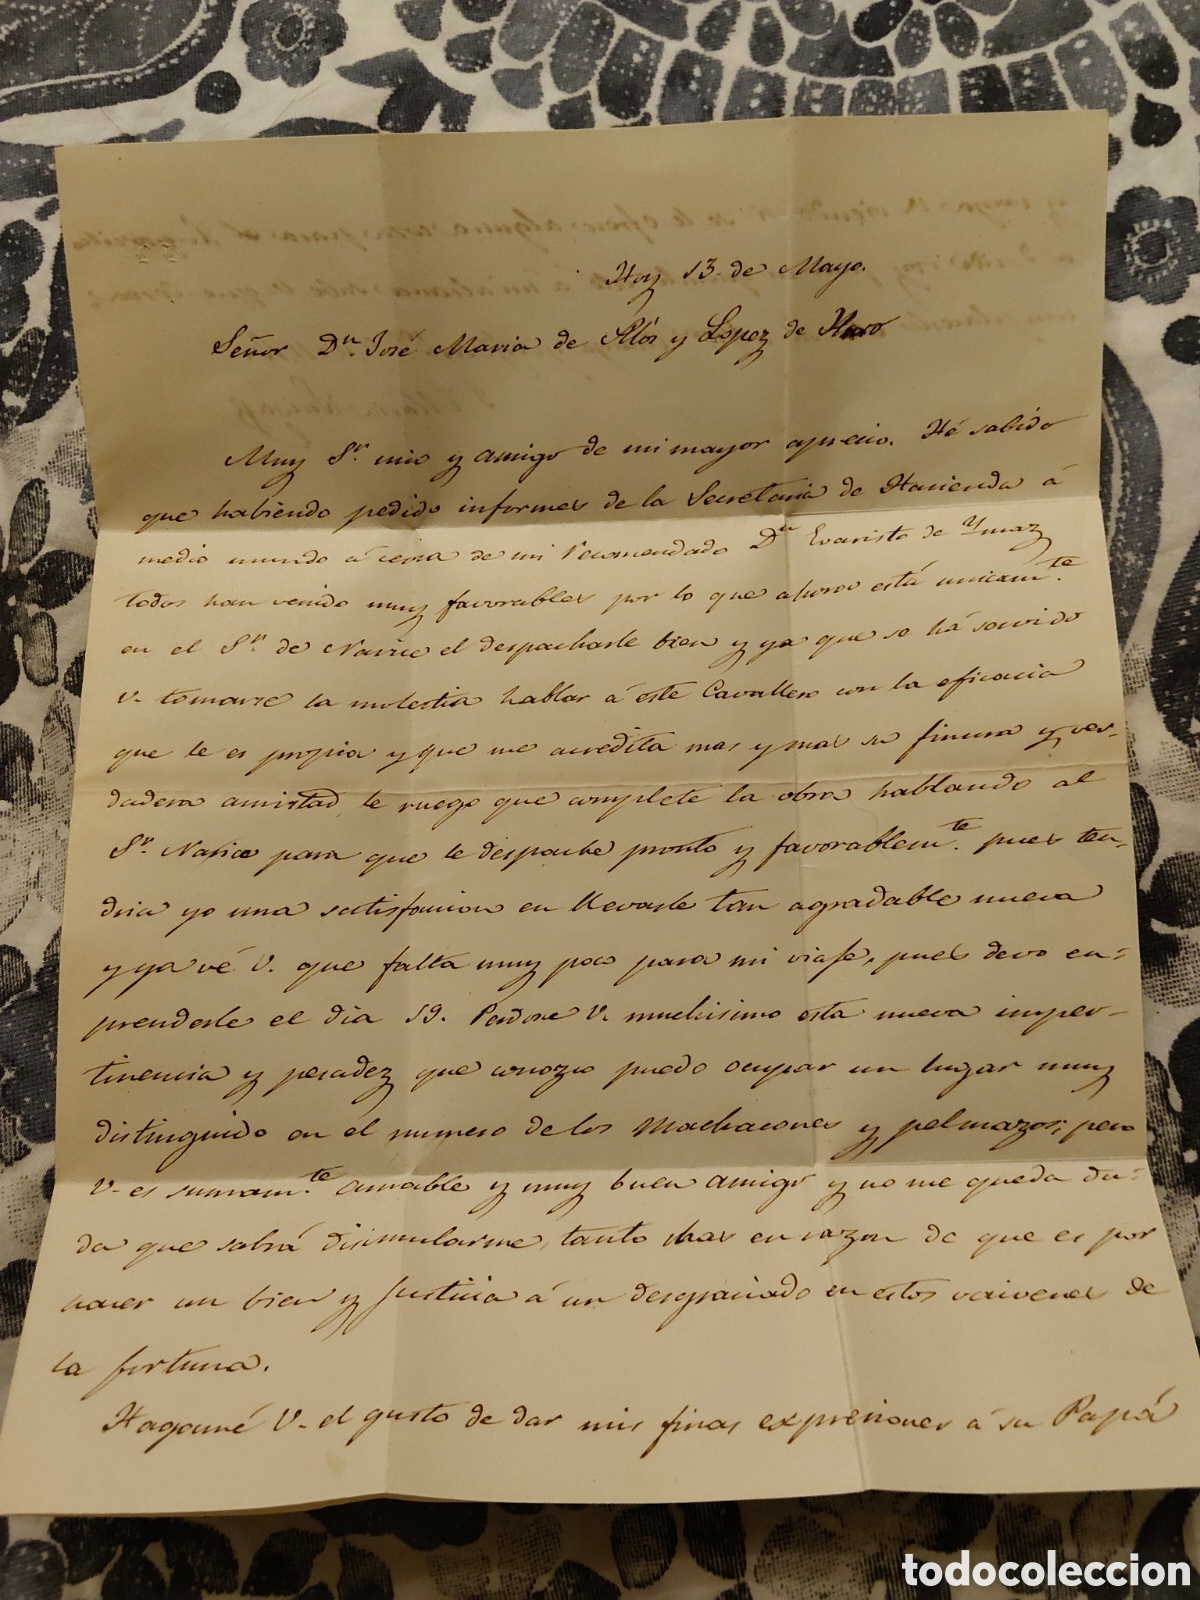 Hoy 13. de Mayo.
Señor Dn. José Maria de Alós y Lopez de Haro
Muy Sr. mio y amigo de mi mayor aprecio. Hé sabido
que habiendo pedido informes de la Secretaria de Hacienda á
medio mundo acerca de mi recomendado Dn Evaristo de Ymaz
todos han venido muy favorables por lo que ahora está unicamte.
en el Sr. de el despacharle bien y ya que se há servido
V. tomarse la molestia hablar á este Cavallero con la eficacia
que le es propia y que me acredita mas y mas su finura y ver-
dadera amistad, le ruego que complete la obra hablando al
Sr. para que le despache pronto y favorablemte. pues ten-
dria yo una satisfaccion en llevarle tan agradable nueva
y ya vé V. que falta muy poco para mi viaje, pues devo em-
prenderle el dia 19. Perdone V. muchisimo esta nueva imper-
tinencia y pesadez que conozco puedo ocupar un lugar muy
distinguido en el numero de los Machacones y pelmazos; pero
V. es sumamte. amable y muy buen amigo y no me queda du-
da que sabrá disimularme, tanto mas en razon de que es por
hacer un bien y justicia á un desgraciado en estos vaivenes de
la fortuna.
Hagamé V. el gusto de dar mis finas expresiones á su Papá
todocoleccion